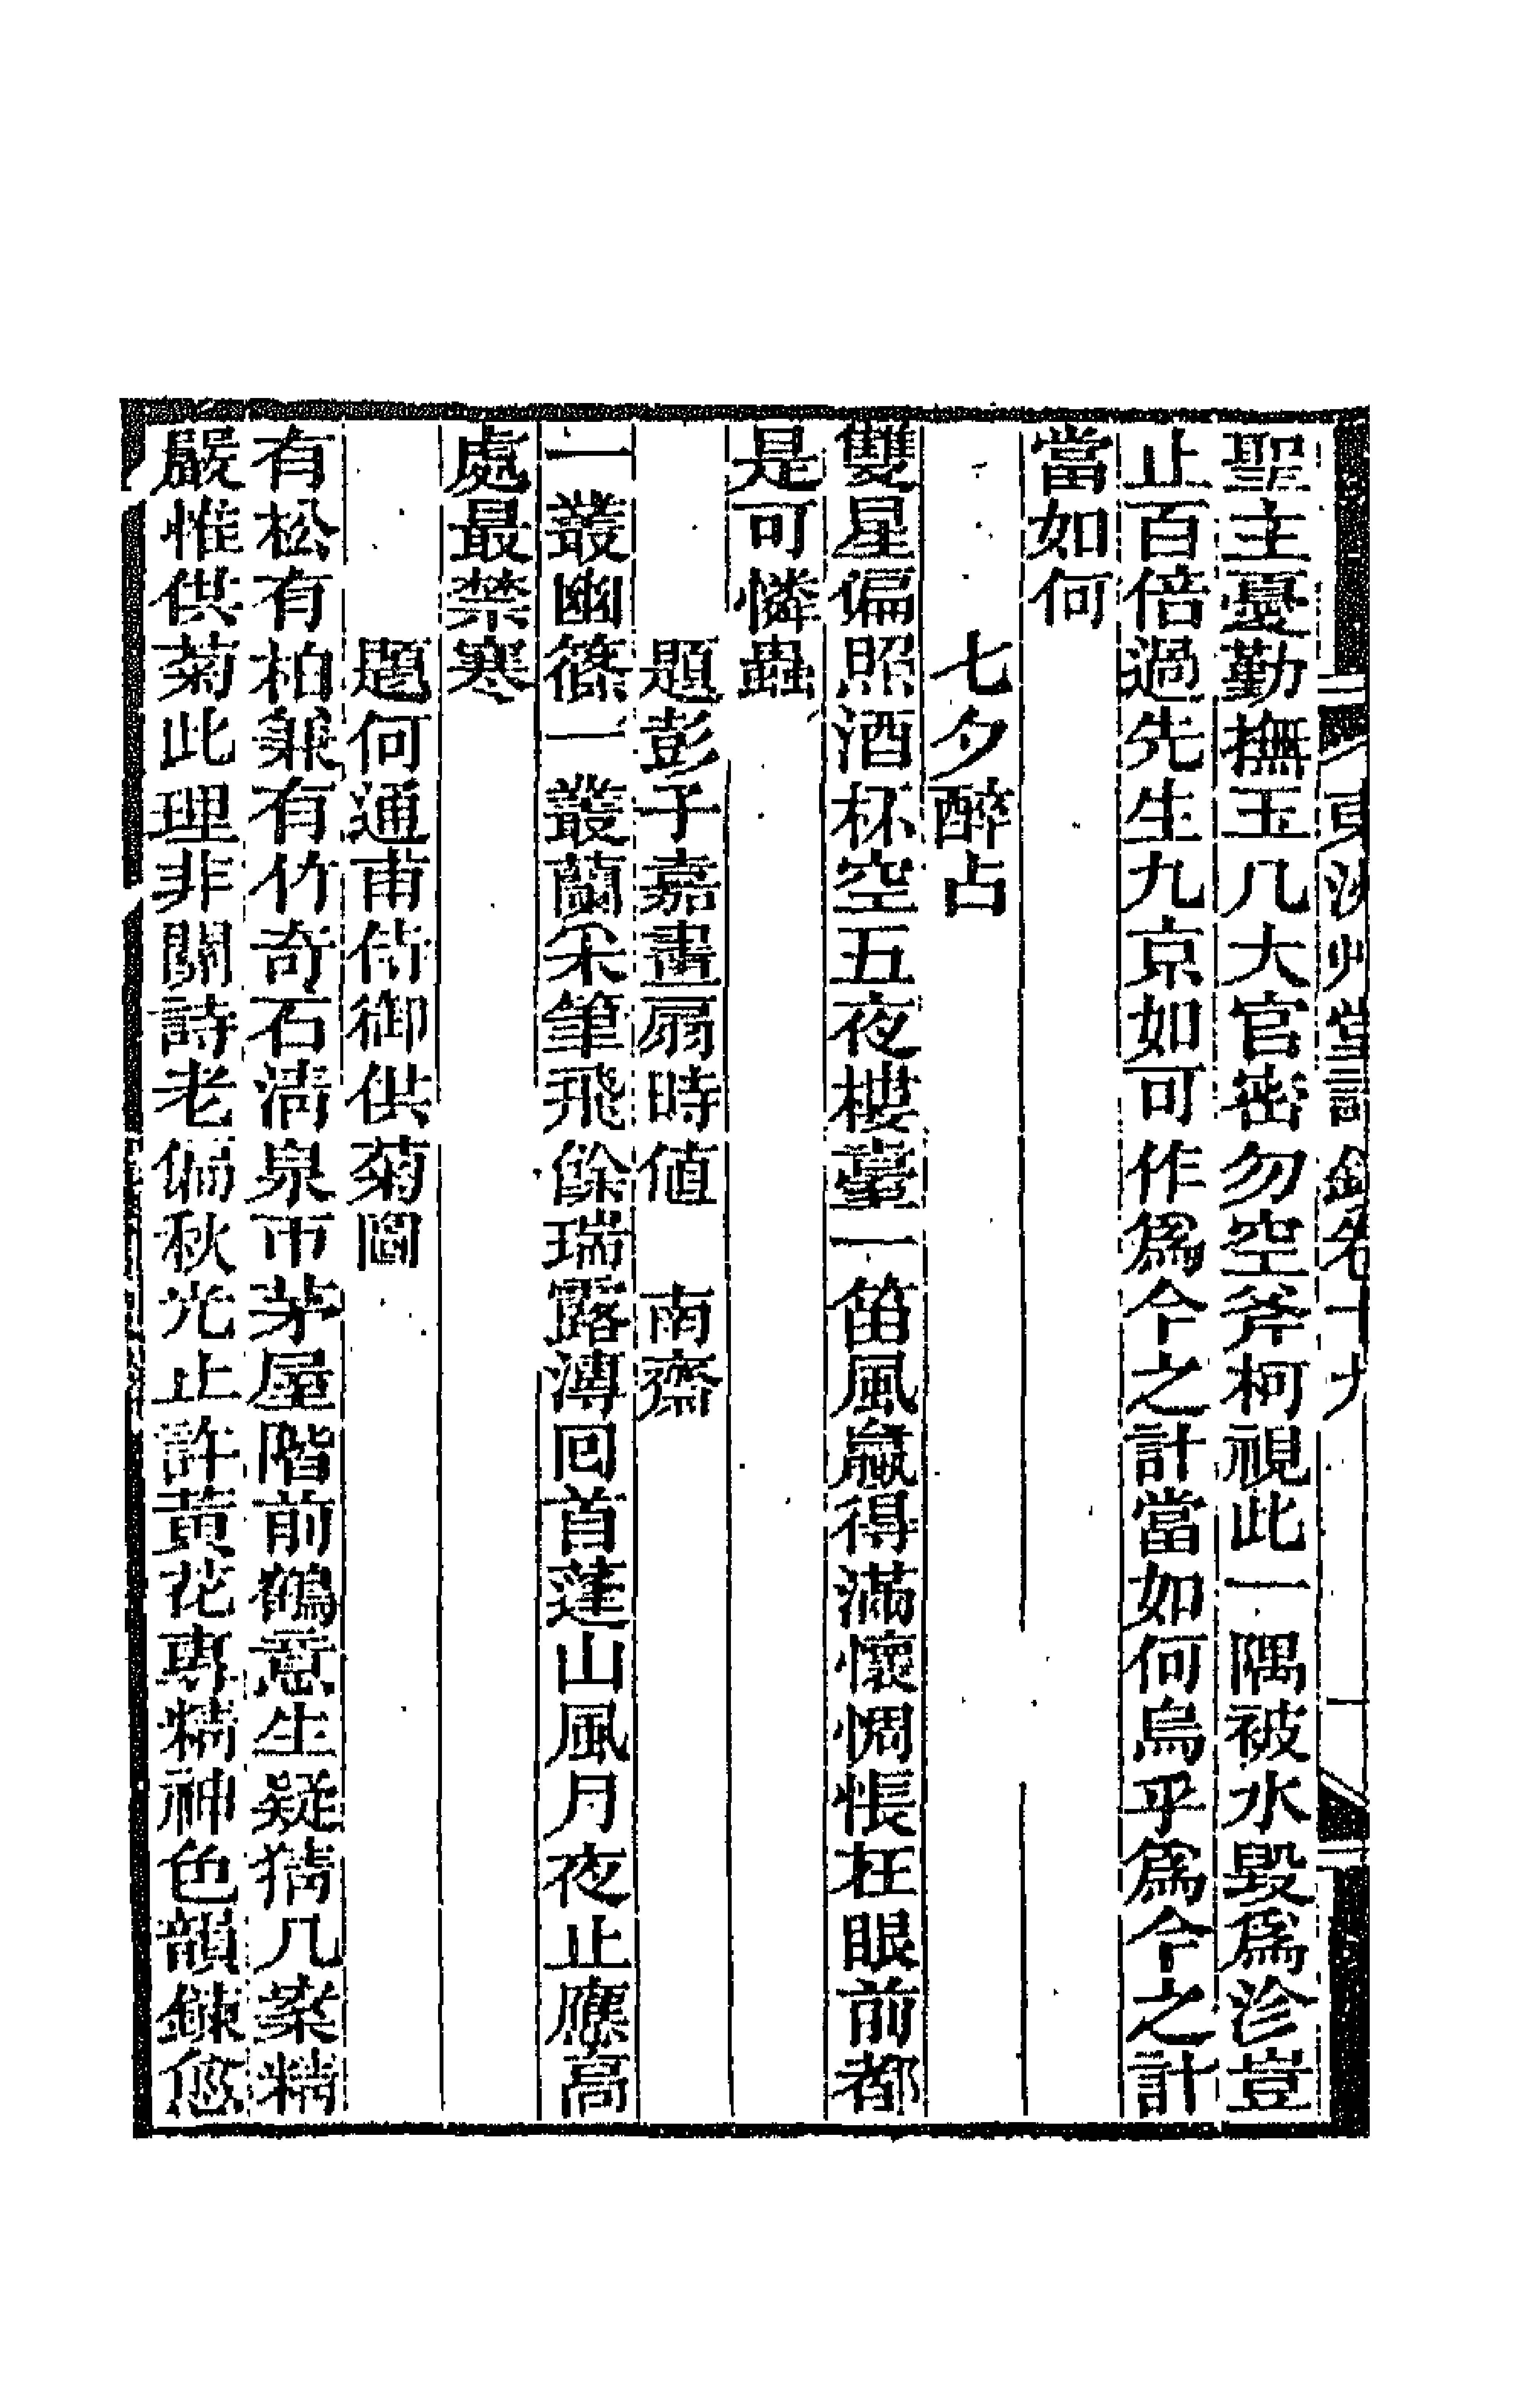 東洲艸堂詩鈔卷十九
一
聖主憂勤撫玉几大官密勿空斧柯視此一隅被水毀爲沴豈
止百倍過先生九京如可作爲今之計當如何烏乎爲今之計
當如何
七夕醉占
雙星偏照酒杯空五夜樓臺一笛風嬴得滿懷惆悵在眼前都
是可憐蟲
題彭子嘉畫扇時値 南齋
一叢幽篠一叢蘭禾筆飛餘瑞露漙囘首蓬山風月夜止應高
處最禁寒
題何通甫侍御供菊圖
有松有柏兼有竹奇石淸泉帀茅屋階前鶴意生疑猜几案精
嚴惟供菊此理非關詩老偏秋光止許黃花專精神色韻鍊愈